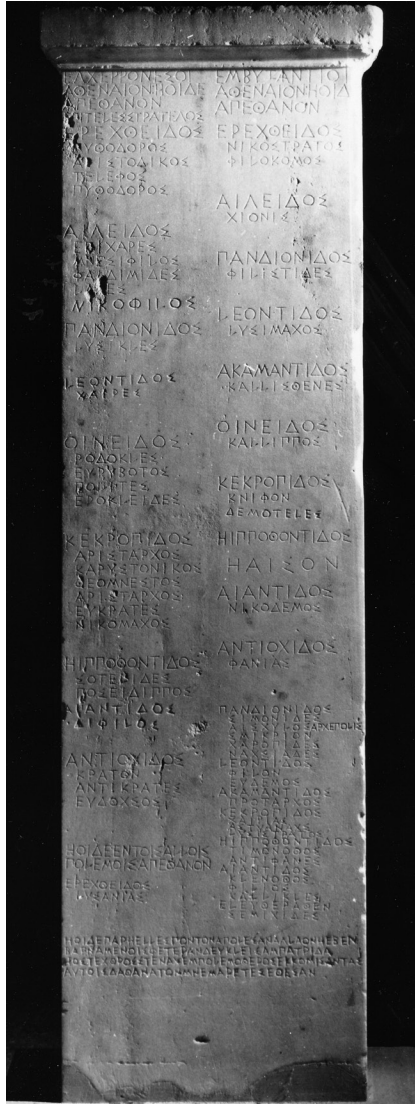 ΕΛΧΕΡΡΟΝΕΣΟΙ
ΑΘΕΝΑΙΟΝΗΟΙΔΕ
ΑΠΕΘΑΝΟΝ
ΕΠΙΤΕΛΕΣΣΤΡΑΤΕΓΟΣ
ΕΡΕΧΘΕΙΔΟΣ
ΠΥΘΟΔΟΡΟΣ
ΑΡΙΣΤΟΔΙΚΟΣ
ΤΕΛΕΦΟΣ
ΠΥΘΟΔΟΡΟΣ
ΑΙΓΕΙΔΟΣ
ΕΠΙΧΑΡΕΣ
ΜΝΕΣΙΦΙΛΟΣ
ΦΑΙΔΙΜΙΔΕΣ
ΝΙΚΟΦΙΛΟΣ
ΠΑΝΔΙΟΝΙΔΟΣ
ΛΥΣΙΚΛΕΣ
ΛΕΟΝΤΙΔΟΣ
ΧΑΙΡΕΣ
ΟΙΝΕΙΔΟΣ
ΡΟΔΟΚΛΕΣ
ΕΥΡΥΒΟΤΟΣ
ΠΟΛΙΤΕΣ
ΕΡΟΚΛΕΙΔΕΣ
ΚΕΚΡΟΠΙΔΟΣ
ΑΡΙΣΤΑΡΧΟΣ
ΚΑΡΥΣΤΟΝΙΚΟΣ
ΘΕΟΜΝΕΣΤΟΣ
ΑΡΙΣΤΑΡΧΟΣ
ΕΥΚΡΑΤΕΣ
ΝΙΚΟΜΑΧΟΣ
ΗΙΠΠΟΘΟΝΤΙΔΟΣ
ΣΟΤΕΛΙΔΕΣ
ΠΟΣΕΙΔΙΠΠΟΣ
ΑΙΑΝΤΙΔΟΣ
ΔΙΦΙΛΟΣ
ΑΝΤΙΟΧΙΔΟΣ
ΚΡΑΤΟΝ
ΑΝΤΙΚΡΑΤΕΣ
ΕΥΔΟΧΣΟΣ
ΗΟΙΔΕΕΝΤΟΙΣΑΛΛΟΙΣ
ΠΟΛΕΜΟΙΣΑΠΕΘΑΝΟΝ
ΕΡΕΧΘΕΙΔΟΣ
ΛΥΣΑΝΙΑΣ
ΕΜΒΥΖΑΝΤΙΟΙ
ΑΘΕΝΑΙΟΝΗΟΙΔ
ΑΠΕΘΑΝΟΝ
ΕΡΕΧΘΕΙΔΟΣ
ΝΙΚΟΣΤΡΑΤΟΣ
ΦΙΛΟΚΟΜΟΣ
ΑΙΓΕΙΔΟΣ
ΧΙΟΝΙΣ
ΠΑΝΔΙΟΝΙΔΟΣ
ΦΙΛΙΣΤΙΔΕΣ
ΛΕΟΝΤΙΔΟΣ
ΛΥΣΙΜΑΧΟΣ
ΑΚΑΜΑΝΤΙΔΟΣ
ΚΑΛΛΙΣΘΕΝΕΣ
ΟΙΝΕΙΔΟΣ
ΚΑΛΛΙΠΠΟΣ
ΚΕΚΡΟΠΙΔΟΣ
ΚΝΙΦΟΝ
ΔΕΜΟΤΕΛΕΣ
ΗΙΠΠΟΘΟΝΤΙΔΟΣ
ΗΑΙΣΟΝ
ΑΙΑΝΤΙΔΟΣ
ΝΙΚΟΔΕΜΟΣ
ΑΝΤΙΟΧΙΔΟΣ
ΦΑΝΙΑΣ
ΠΑΝΔΙΟΝΙΔΟΣ
ΣΙΜΟΝΙΔΕΣ
ΑΙΣΧΥΛΟΣ
ΑΡΧΕΠΟΛΙΣ
ΛΕΟΝΤΙΔΟΣ
ΦΙΛΟΝ
ΕΥΔΕΜΟΣ
ΑΚΑΜΑΝΤΙΔΟΣ
ΠΡΟΤΑΡΧΟΣ
ΚΕΚΡΟΠΙΔΟΣ
ΗΙΠΠΟΘΟΝΤΙΔΟΣ
ΑΝΤΙΦΑΝΕΣ
ΑΙΑΝΤΙΔΟΣ
ΕΛΕΥΘΕΡΑΘΕΝ
ΣΕΜΙΧΙΔΕΣ
ΗΟΙΔΕΠΑΡΗΕΛΛΕΣΠΟΝΤΟΝΑΠΟΛΕΣΑΝΑΓΛΑΟΝΗΕΒΕΝ
ΒΑΡΝΑΜΕΝΟΙΣΦΕΤΕΡΑΝΔΕΥΚΛΕΙΣΑΜΠΑΤΡΙΔΑ
ΗΟΣΤΕΧΘΡΟΣΣΤΕΝΑΧΕΜΠΟΛΕΜΟΘΕΡΟΣΕΚΚΟΜΙΣΑΝΤΑΣ
ΑΥΤΟΙΣΔΑΘΑΝΑΤΟΝΜΝΕΜΑΡΕΤΕΣΕΘΕΣΑΝ